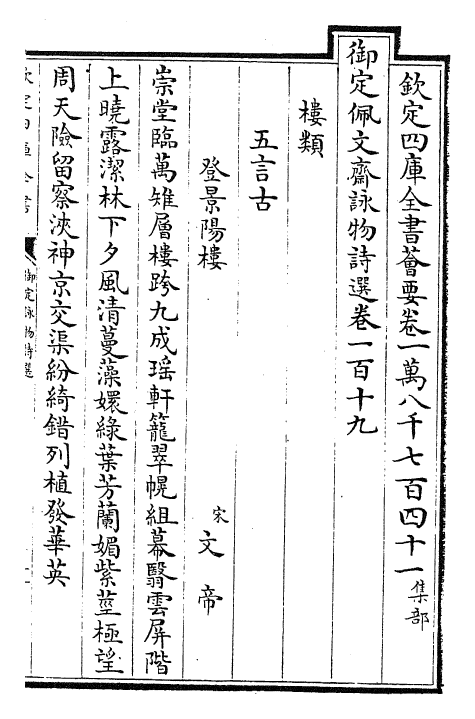 欽定四庫全書薈要卷一萬八千七百四十一集部
御定佩文齋詠物詩選卷一百十九
樓類
五言古
登景陽樓
宋文帝
崇堂臨萬雉層樓跨九成瑶軒籠翠幌組幕翳雲屏階
上曉露潔林下夕風清蔓藻嬛綠葉芳蘭媚紫莖極望
周天險留察浹神京交渠紛綺錯列植發華英
御定詠物詩選